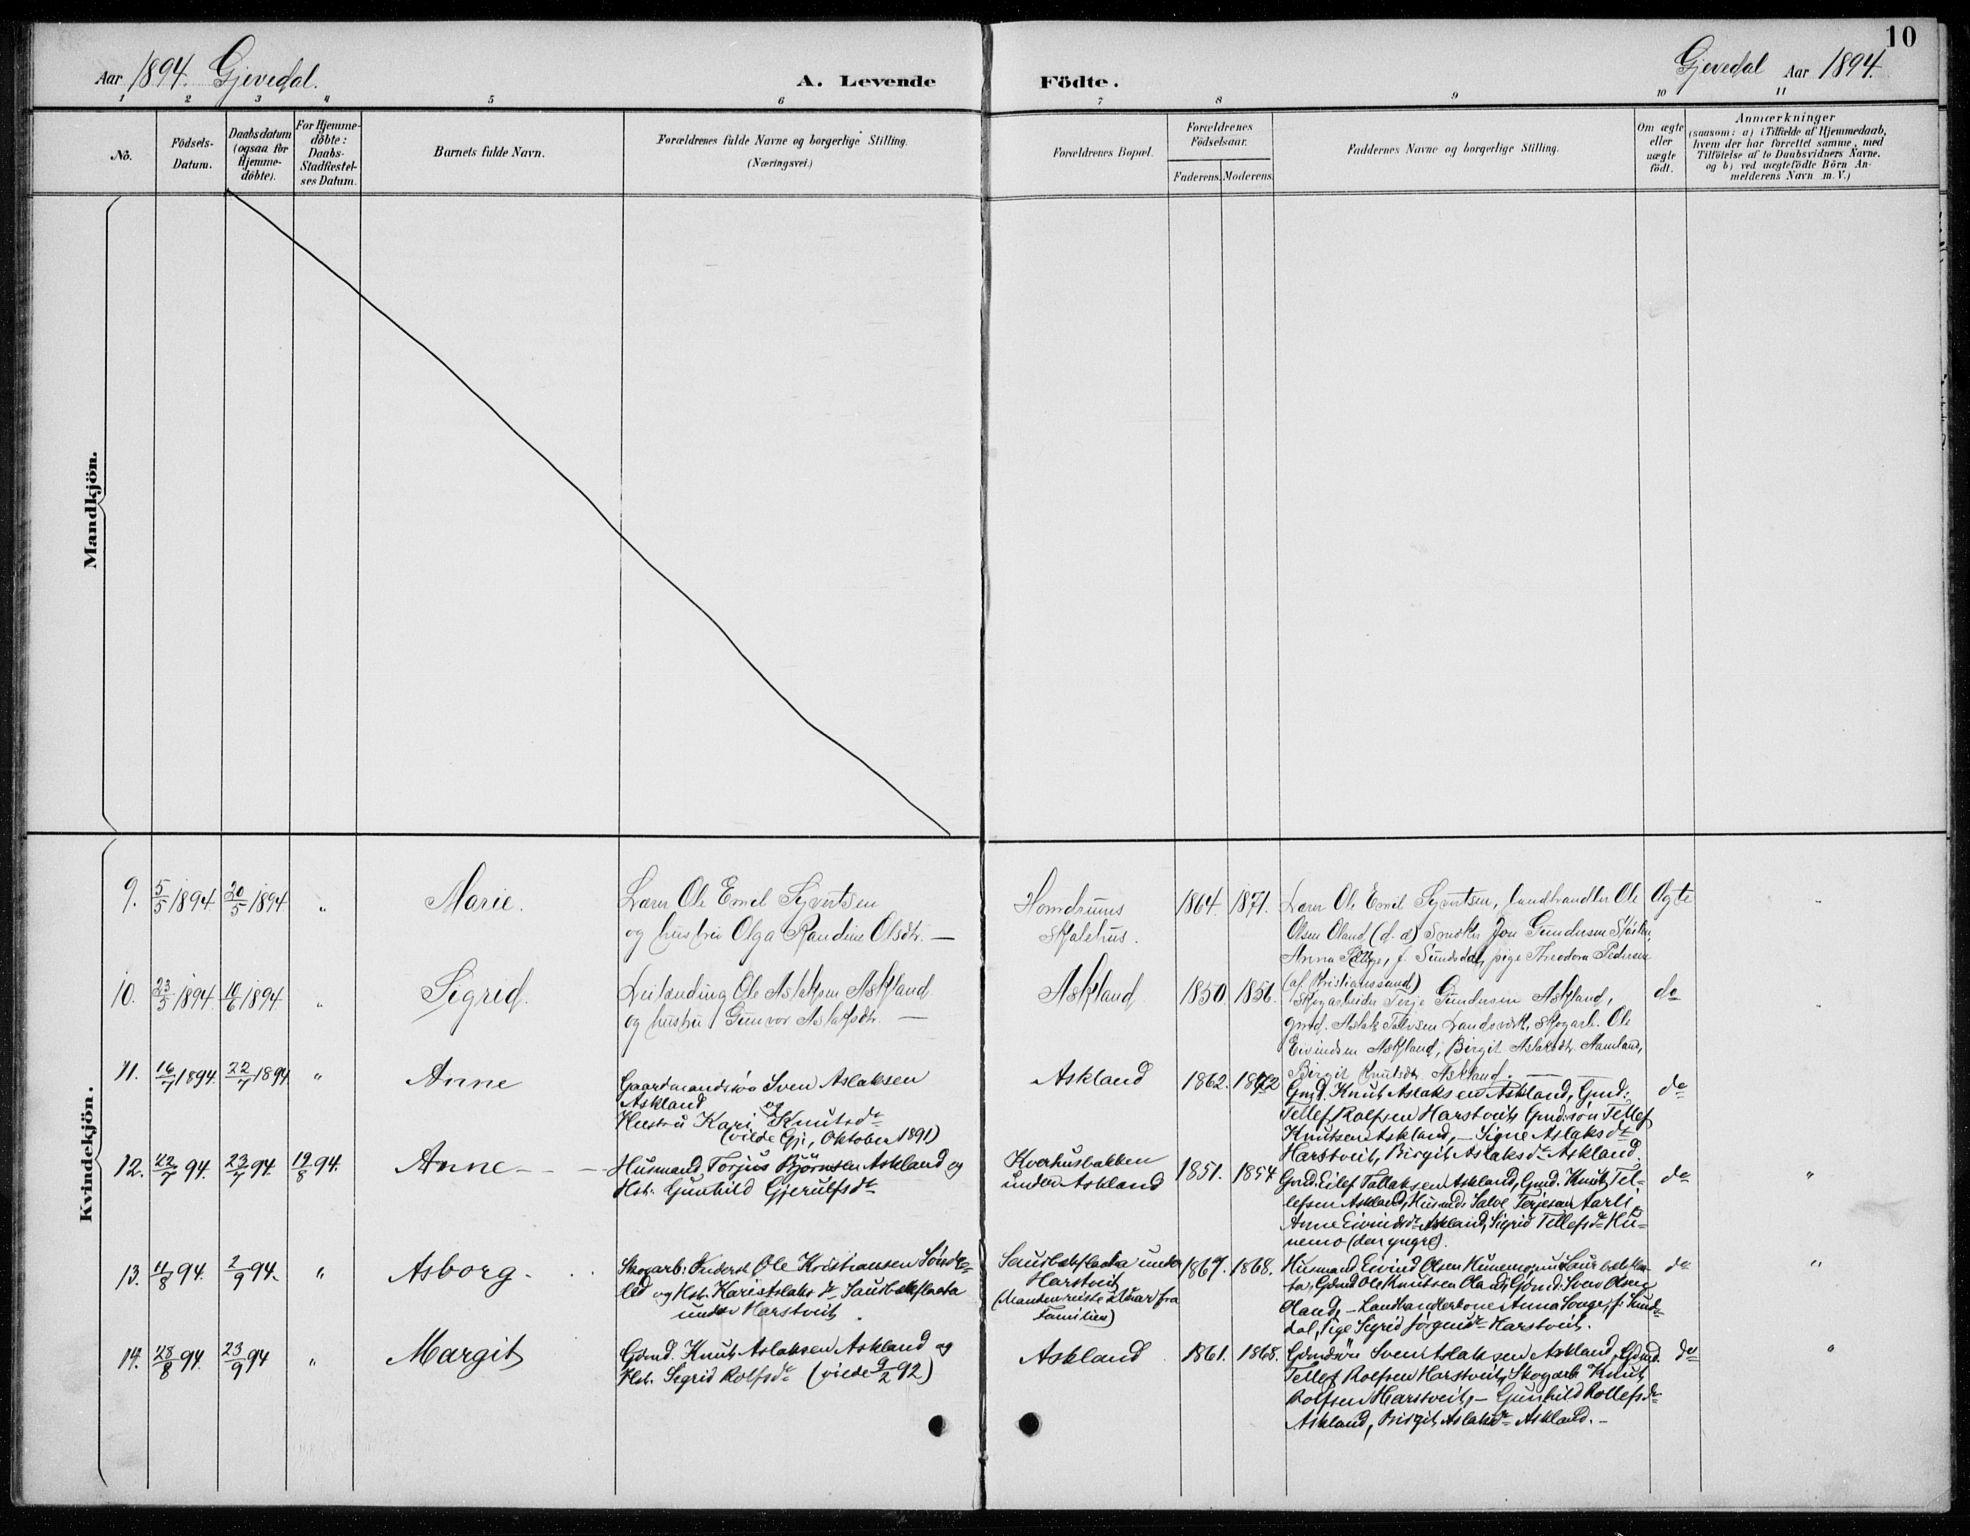 10
Aar 1894. Gjevedal.
A. Levende Födte.
Gjevedal Aar 1894.
1 2 3 4 5 6 7 8 9 10 11
No.
Födsels-
Datum.
Daabsdatum
(ogsaa for
Hjemme-
döbte).
For Hjemme-
döbte:
Daabs-
Stadfæstel-
ses Datum.
Barnets fulde Navn.
Forældrenes fulde Navne og borgerlige Stilling.
(Næringsvei.)
Forældrenes Bopæl.
Forældrenes
Födselsaar.
Faderens. Moderens.
Faddernes Navne og borgerlige Stilling.
Om ægte
eller
uægte
födt.
Anmærkninger
(saasom: a) i Tilfælde af Hjemmedaab,
hvem der har forrettet samme, med
Tilföielse af to Daabsvidners Navne.
og b) ved uægtefödte Börn An-
melderens Navn m. V.)
Mandkjön.
Kvindekjön.
9. 5/5 1894 20/5 1894 "
Marie.
Lærer Ole Emil Syvertsen
og hustru Olga Randine Olsdtr. —
Homdrums
Skolehus.
1864. 1871.
Lærer Ole Emil Syvertsen, landhandler Ole
Olsen Oland (d. æ) Smeder Jon Gundersen
Anna f. Sundsdal, pige Theodora Pedersen
(af Kristianssand)
Ægte
10. 23/5 1894 10/6 1894. "
Sigrid.
Leilænding Ole Aslaksen Askland
og hustru Gunvor Aslaksdtr. —
Askland
1850. 1856.
Skogarbeider Terje Gundersen Askland,
gmd. Aslak Tellefsen Landsverk, Skogarb. Ole
Eivindsen Askland, Birgit Aslaksdtr. Aamland,
Birgit Knutsdtr. Askland. —
do
11. 16/7 1894. 22/7 1894 "
Anne
Gaardmandssøn Sven Aslaksen
Askland og
Hustru Kari Knutsdtr
(viede Gj., Oktober 1891)
Askland
1862. 1872
Gmd. Knut Aslaksen Askland, Gmd:
Tellef Rolfsen Harstveit, Gmdsøn Tellef
Knutsen Askland, — Signe Aslaksdtr
Harstveit, Birgit Aslaksdtr Askland.
do
12. 22/7 94. 23/7 94. 19/8 94.
Anne — —
Husmand Torjus Björnsen Askland og
Hst. Gunhild Gjerulfsdtr
Kverhusbakken
under Askland
1851. 1854
Gmd. Eilef Tallaksen Askland, Gmd. Knut Tel-
lefsen Askland, Husmd. Salve Terjesen Aarli,
Anne Eivindsdtr Askland, Sigrid Tellefsdtr Hu-
nemo (den yngre).
do "
13. 11/8 94. 2/9 94. "
Asborg.
Skogarb: Anderst Ole Kristiansen
og Hst. Kari Aslaksdtr Sausbækflaata
under Harstveit.
Sausbækflaata under
Harstveit
(Manden reiste fra
Familien)
1867. 1868.
Husmand Eivind Olsen
Gdmd Ole Knutsen Oland, Gdmd. Sven Olsen
Oland, — Landhandlerkone Anna Songe, f. Sunds-
dal, Pige Sigrid Jörgensdtr Harstveit.
do "
14. 28/8 94. 23/9 94 "
Margit
Gdmd. Knut Aslaksen Askland og
Hst. Sigrid Rolfsdtr (viede 9/2 92)
Askland
1861. 1868.
Gdmdsön Sven Aslaksen Askland, Gdmd.
Tellef Rolfsen Harstveit, Skogarb Knut
Rolfsen Harstveit, — Gunhild Rollefsdtr
Askland, Birgit Aslaksdtr Askland. —
do "